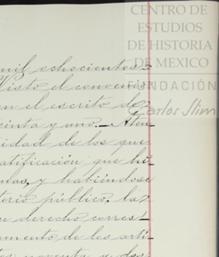 CENTRO DE
ESTUDIOS
DE HISTORIA
DE MEXICO
FUNDACIÓN
Carlos Slim
mil ochocientos
Visto el convenio
en el escrito de
cinta y uno. Aten
idad de los que
ratificación, que hi
ntas, y habiéndose
terio público. La
n derecho corres
amento de los arti
tos noventa y dos